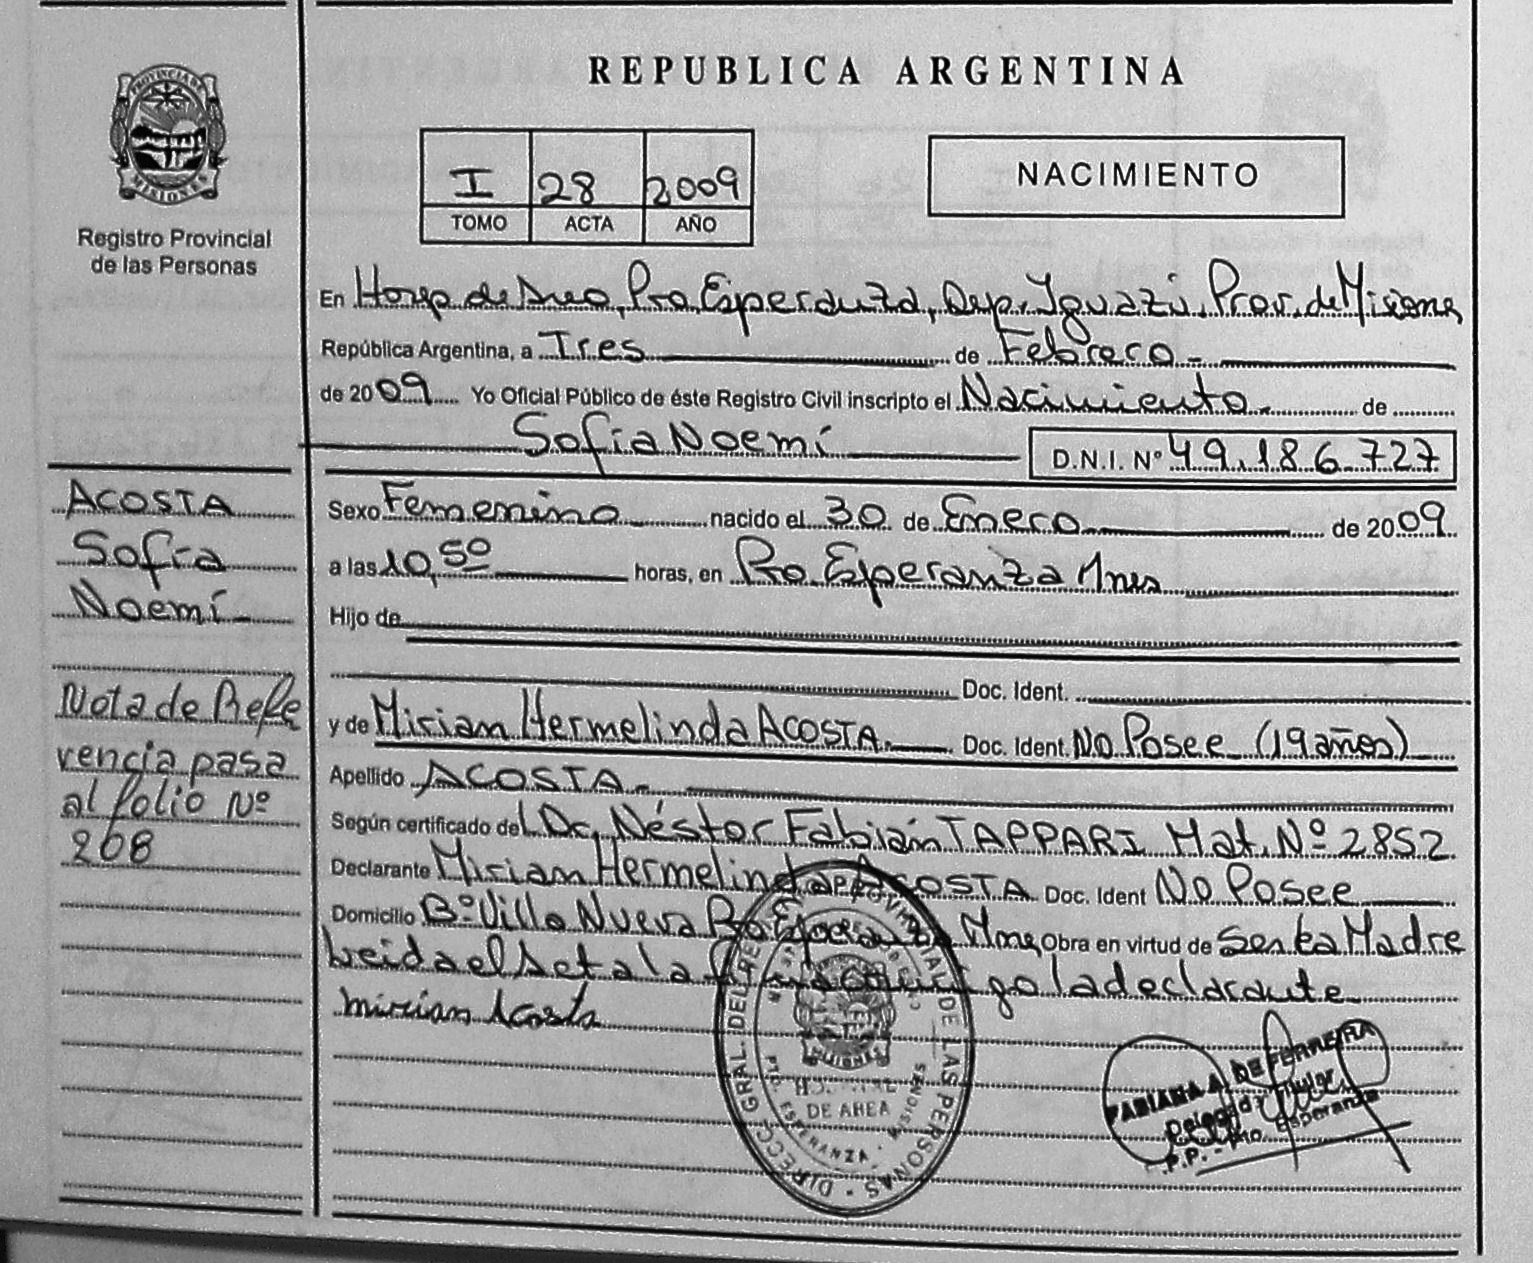 PROVINCIA DE
MISIONES
Registro Provincial
de las Personas
REPUBLICA ARGENTINA
I 28 2009
TOMO ACTA AÑO
NACIMIENTO
En Hosp. de Area, Pto Esperanza, Dep. Iguazú, Prov. de Misiones
República Argentina, a Tres de Febrero
de 2009 Yo Oficial Público de éste Registro Civil inscripto el Nacimiento de
Sofía Noemí D.N.I. Nº 49.186.727
ACOSTA
Sofía
Noemí
Nota de Refe
rencia pasa
al folio Nº
268
Sexo Femenino nacido el 30 de Enero de 2009
a las 10,50 horas, en Pto Esperanza Mnes
Hijo de
Doc. Ident.
y de Mirian Hermelinda ACOSTA. Doc. Ident. No Posee (19 años)
Apellido ACOSTA.
Según certificado del Dr. Néstor Fabián TAPPARI Mat. Nº 2852
Declarante Mirian Hermelinda ACOSTA Doc. Ident No Posee
Domicilio Bº Villa Nueva Pto Esperanza Mnes Obra en virtud de Ser la Madre
Leida el Acta la firma conmigo la declarante
Mirian Acosta
DIRECC. GRAL. DEL REG. PROVINCIAL DE LAS PERSONAS
MISIONES
DE AREA
PTO. ESPERANZA - MISIONES
FABIANA A. DE FERREIRA
Delegada Titular
R.P.P. - Pto. Esperanza